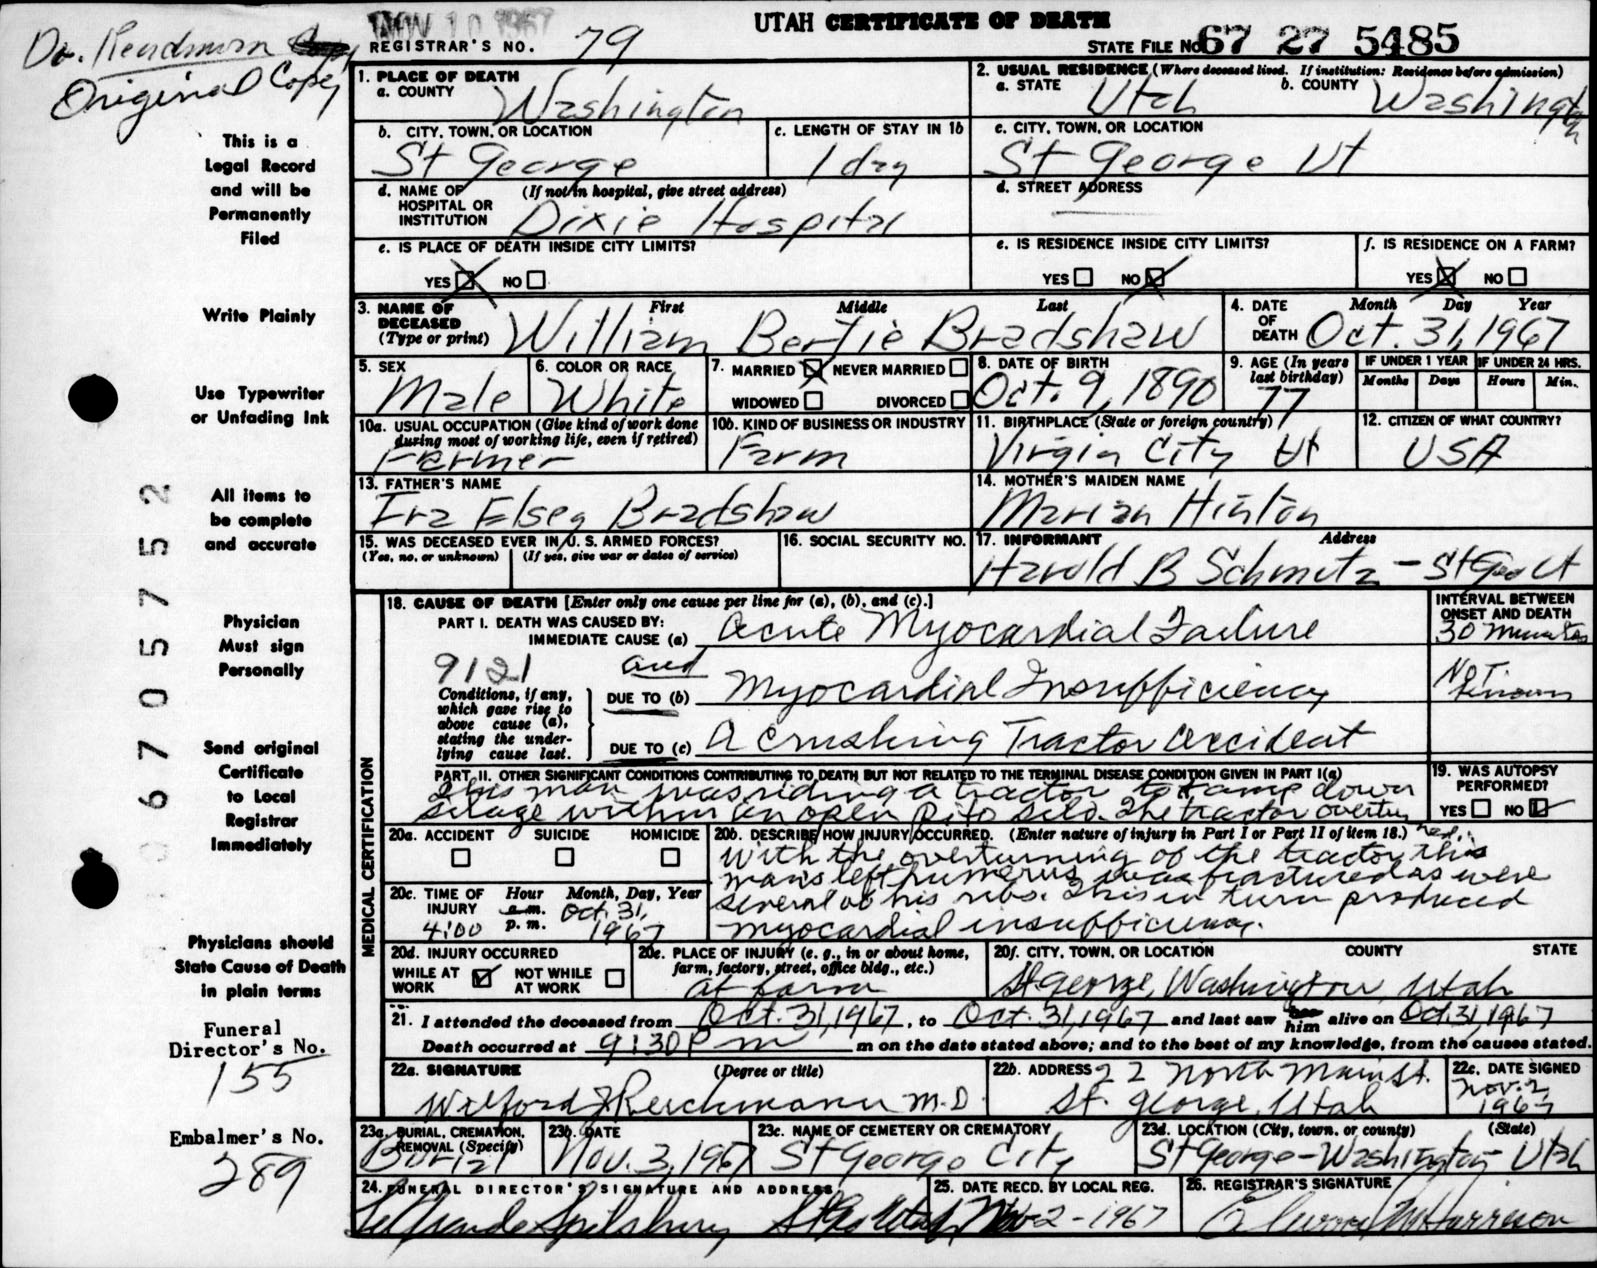 NOV 10 1967
UTAH CERTIFICATE OF DEATH
REGISTRAR'S NO. 79
STATE FILE No. 67 27 5485
Original Copy
This is a
Legal Record
and will be
Permanently
Filed
Write Plainly
Use Typewriter
or Unfading Ink
All items to
be complete
and accurate
Physician
Must sign
Personally
Send original
Certificate
to Local
Registrar
Immediately
Physicians should
State Cause of Death
in plain terms
Funeral
Director's No.
155
Embalmer's No.
289
6705752
1. PLACE OF DEATH
a. COUNTY Washington
2. USUAL RESIDENCE (Where deceased lived. If institution: Residence before admission)
a. STATE Utah b. COUNTY Washington
b. CITY, TOWN, OR LOCATION St George
c. LENGTH OF STAY IN 1b 1 day
c. CITY, TOWN, OR LOCATION St George Ut
d. NAME OF HOSPITAL OR INSTITUTION (If not in hospital, give street address) Dixie Hospital
d. STREET ADDRESS
e. IS PLACE OF DEATH INSIDE CITY LIMITS?
YES NO
e. IS RESIDENCE INSIDE CITY LIMITS?
YES NO
f. IS RESIDENCE ON A FARM?
YES NO
3. NAME OF DECEASED (Type or print) First Middle Last
William Bertie Bradshaw
4. DATE OF DEATH Month Day Year
Oct. 31, 1967
5. SEX Male
6. COLOR OR RACE White
7. MARRIED NEVER MARRIED
WIDOWED DIVORCED
8. DATE OF BIRTH Oct. 9, 1890
9. AGE (In years last birthday) 77
IF UNDER 1 YEAR Months Days
IF UNDER 24 HRS. Hours Min.
10a. USUAL OCCUPATION (Give kind of work done during most of working life, even if retired) Farmer
10b. KIND OF BUSINESS OR INDUSTRY Farm
11. BIRTHPLACE (State or foreign country) Virgin City Ut
12. CITIZEN OF WHAT COUNTRY? USA
13. FATHER'S NAME Ira Elsey Bradshaw
14. MOTHER'S MAIDEN NAME Marian Hinton
15. WAS DECEASED EVER IN U. S. ARMED FORCES?
(Yes, no, or unknown) (If yes, give war or dates of service)
16. SOCIAL SECURITY NO.
17. INFORMANT Address
Harold B Schmutz - St Geo Ut
MEDICAL CERTIFICATION
18. CAUSE OF DEATH [Enter only one cause per line for (a), (b), and (c).]
INTERVAL BETWEEN ONSET AND DEATH
PART I. DEATH WAS CAUSED BY:
IMMEDIATE CAUSE (a) Acute Myocardial Failure 30 Minutes
9121 and
Conditions, if any, which gave rise to above cause (a), stating the underlying cause last.
DUE TO (b) Myocardial Insufficiency Not Known
DUE TO (c) A Crushing Tractor accident
PART II. OTHER SIGNIFICANT CONDITIONS CONTRIBUTING TO DEATH BUT NOT RELATED TO THE TERMINAL DISEASE CONDITION GIVEN IN PART I(a)
This man was riding a tractor to tamp down
silage within an open pit silo. The tractor overturned.
19. WAS AUTOPSY PERFORMED?
YES NO
20a. ACCIDENT SUICIDE HOMICIDE
20b. DESCRIBE HOW INJURY OCCURRED. (Enter nature of injury in Part I or Part II of item 18.)
With the overturning of the tractor this
man's left humerus was fractured as were
several of his ribs. This in turn produced
myocardial insufficiency.
20c. TIME OF INJURY Hour Month, Day, Year
4:00 a.m. p.m. Oct. 31, 1967
20d. INJURY OCCURRED
WHILE AT WORK NOT WHILE AT WORK
20e. PLACE OF INJURY (e. g., in or about home, farm, factory, street, office bldg., etc.)
at farm
20f. CITY, TOWN, OR LOCATION COUNTY STATE
St George, Washington, Utah
21. I attended the deceased from Oct. 31, 1967, to Oct. 31, 1967 and last saw her him alive on Oct. 31, 1967
Death occurred at 9:30 P m m on the date stated above; and to the best of my knowledge, from the causes stated.
22a. SIGNATURE (Degree or title)
Wilford J Reichmann M.D.
22b. ADDRESS 22 North Main St.
St. George, Utah
22c. DATE SIGNED
Nov. 2 1967
23a. BURIAL, CREMATION, REMOVAL (Specify) Burial
23b. DATE Nov. 3, 1967
23c. NAME OF CEMETERY OR CREMATORY St George City
23d. LOCATION (City, town, or county) (State)
St George - Washington - Utah
24. FUNERAL DIRECTOR'S SIGNATURE AND ADDRESS
Spilsbury St Geo Utah
25. DATE RECD. BY LOCAL REG.
Nov-2-1967
26. REGISTRAR'S SIGNATURE
Harrison